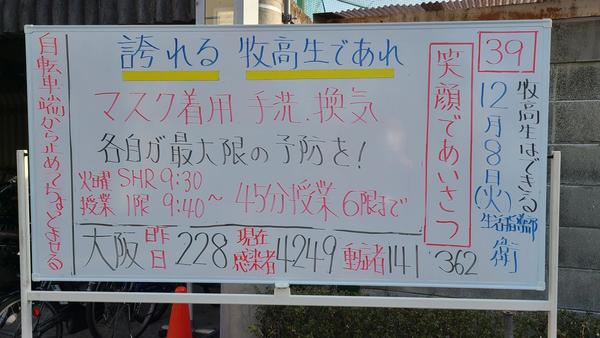 39
牧高生はできる
12月8日(火)
生活指導部
衛
笑顔であいさつ
362
誇れる 牧高生であれ
マスク着用、手洗、換気
各自が最大限の予防を!
火曜 SHR 9:30
授業 1限 9:40〜 45分授業 6限まで
大阪 昨日 228 現在感染者 4249 重症者 141
自転車 端から止め